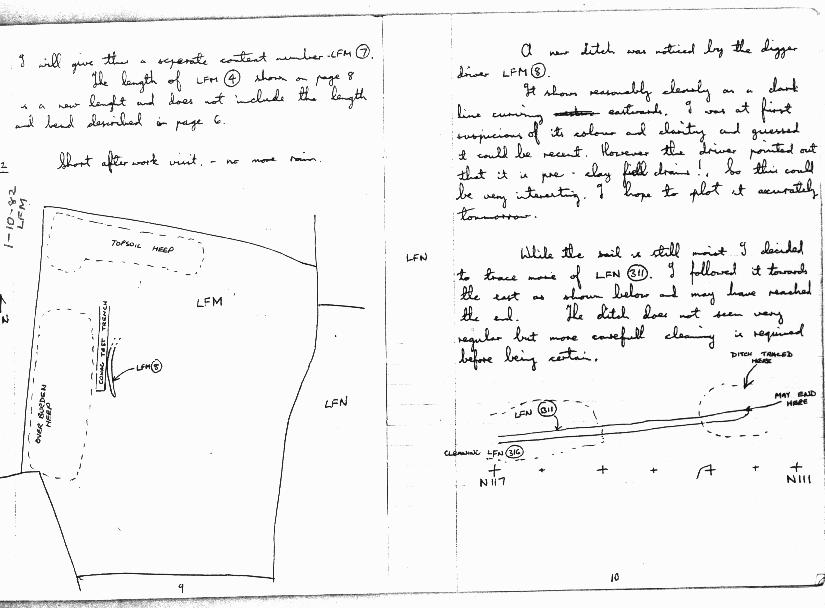 I will give this a seperate context number LFM (7).
The length of LFM (4) shown on page 8
is a new lenght and does not include the length
and bend described in page 6.
Short after work visit, - no more rain.
1-10-82
LFM
TOPSOIL HEEP
LFM
COWAC TEST TRENCH
LFM(8)
OVER BURDEN
HEEP
LFN
9
LFN
A new ditch was noticed by the digger
driver LFM (8).
It shows reasonably clearly as a dark
line curving eastwards. I was at first
suspicious of its colour and clarity and guessed
it could be recent. However the driver pointed out
that it is pre-clay field drains!, So this could
be very interesting. I hope to plot it accurately
tomorrow.
While the soil is still moist I decided
to trace more of LFN (311). I followed it towards
the east as shown below and may have reached
the end. The ditch does not seem very
regular but more carefull cleaning is required
before being certain.
DITCH TRACED
HERE
MAY END
HERE
LFN (311)
CLEANING LFN (316)
N117
N111
10